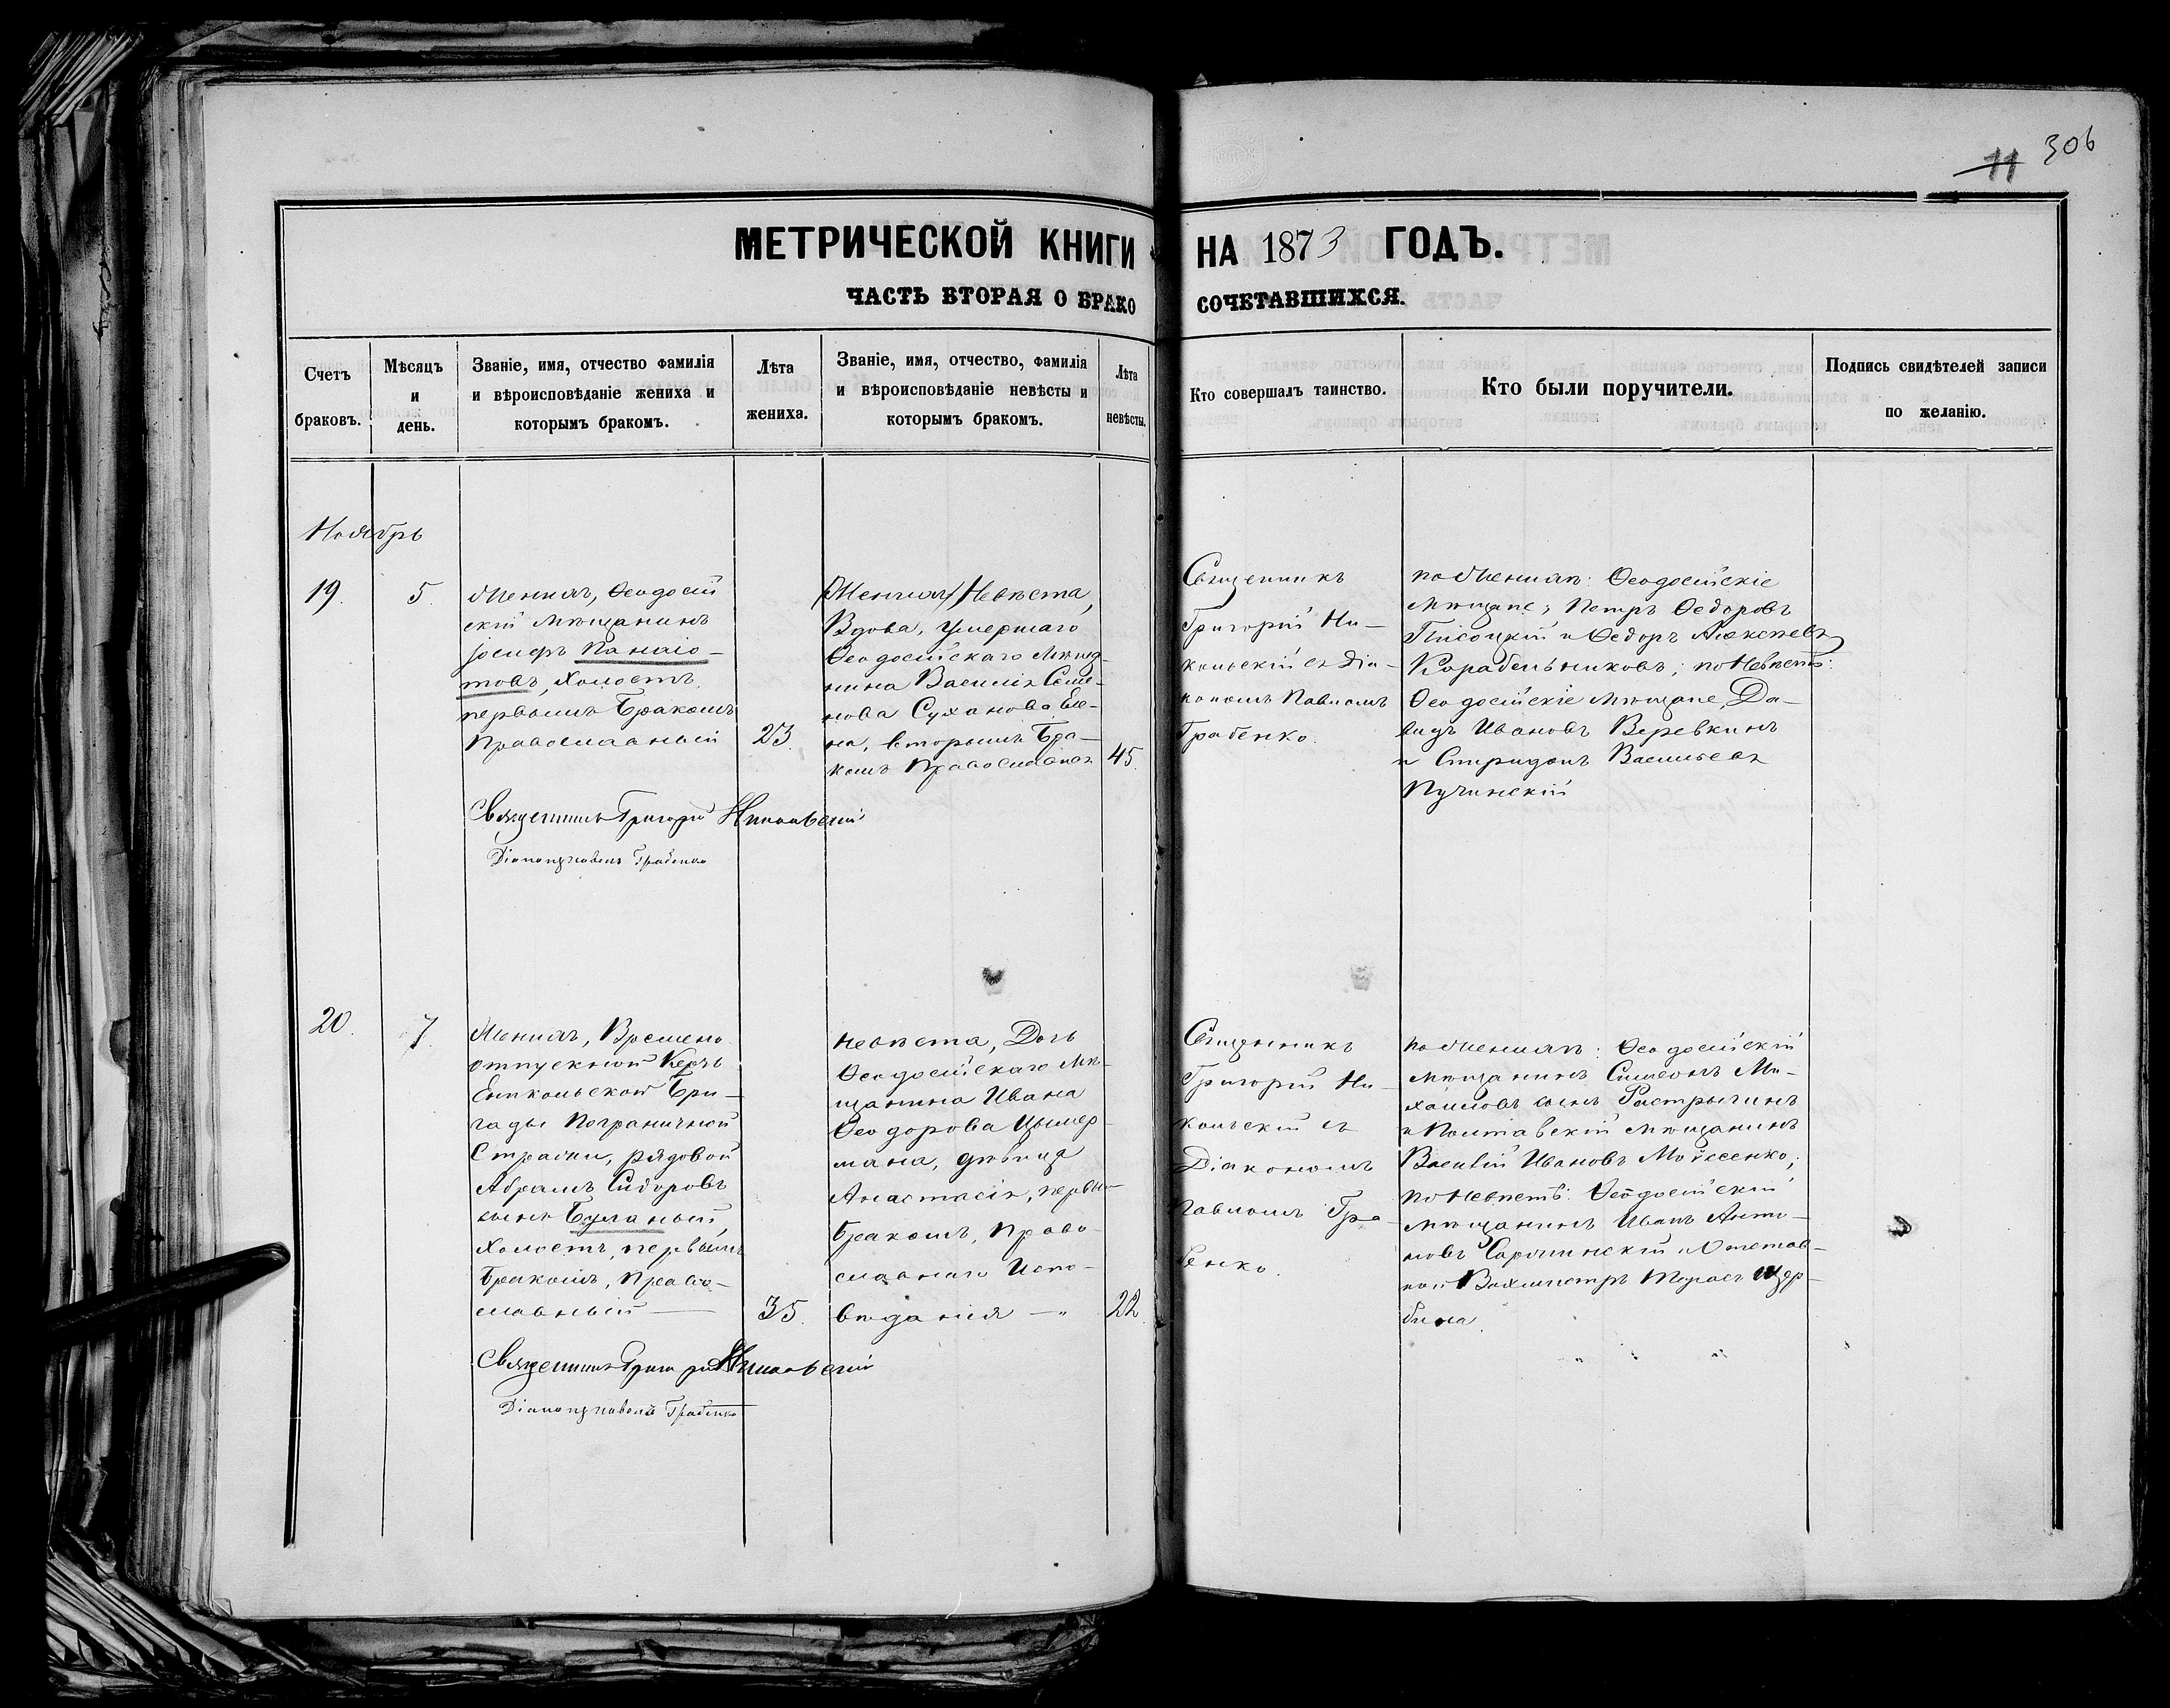 11 306
МЕТРИЧЕСКОЙ КНИГИ НА 1873 ГОДЪ.
ЧАСТЬ ВТОРАЯ О БРАКОСОЧЕТАВШИХСЯ.
Счетъ браковъ.
Мѣсяцъ и день.
Званіе, имя, отчество фамилія
и вѣроисповѣданіе жениха и
которымъ бракомъ.
Лѣта жениха.
Званіе, имя, отчество, фамилія
и вѣроисповѣданіе невѣсты и
которымъ бракомъ.
Лѣта невѣсты.
Кто совершалъ таинство.
Кто были поручители.
Подпись свидѣтелей записи
по желанію.
Ноябрь
19. 5.
Женихъ, Ѳеодосій
скій Мѣщанинъ
Іосифъ Панаіо-
товъ, Холостъ
первымъ Бракомъ
Православный
23.
(Женихъ) Невѣста,
Вдова, умершаго
Ѳеодосійскаго Мѣща-
нина Василія Семе-
нова Суханова Еле-
на, вторымъ Бра-
комъ Православная
45.
Священникъ
Григорій Ни-
кольскій съ Діа-
кономъ Павломъ
Грабенко.
по Женихѣ: Ѳеодосійскіе
Мѣщане; Петръ Ѳедоровъ
и Ѳедоръ Алексѣевъ
Карабельниковъ; по Невѣстѣ:
Ѳеодосійскіе Мѣщане, Да-
видъ Ивановъ Веревкинъ
и Спиридонъ Васильевъ
Пучинскій
Священникъ Григорій Никольскій
Діаконъ Павелъ Грабенко
20. 7.
Женихъ, Времено
отпускной Керчь
Еникольской Бри-
гады Пограничной
Стражи, рядовой
Абрамъ Сидоровъ
сынъ Буланый,
Холостъ, первымъ
Бракомъ, Право-
славный
35.
Невѣста, Дочь
Ѳеодосійскаго Мѣ-
щанина Ивана
Ѳеодорова Цымер-
мана, дѣвица
Анастасія, первы-
Бракомъ, Право-
славнаго Испо-
вѣданія — "
22.
Священникъ
Григорій Ни-
кольскій съ
Діакономъ
Павломъ Гра-
бенко.
по Женихѣ: Ѳеодосійскій
Мѣщанинъ Симеонъ Ми-
хайловъ сынъ Растрыгинъ
и Полтавскій мѣщанинъ
Василій Ивановъ Мойсеенко;
по Невѣстѣ: Ѳеодосійскій
Мѣщанинъ Иванъ Анто-
новъ Сорочинскій и Отстав-
ной Вахмистръ Тарасъ Щер-
бина.
Священникъ Григорій Никольскій
Діаконъ Павелъ Грабенко